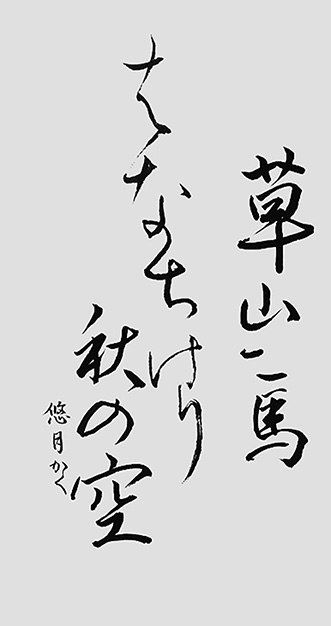 草山ニ馬
はなちけり
秋の空
悠月かく